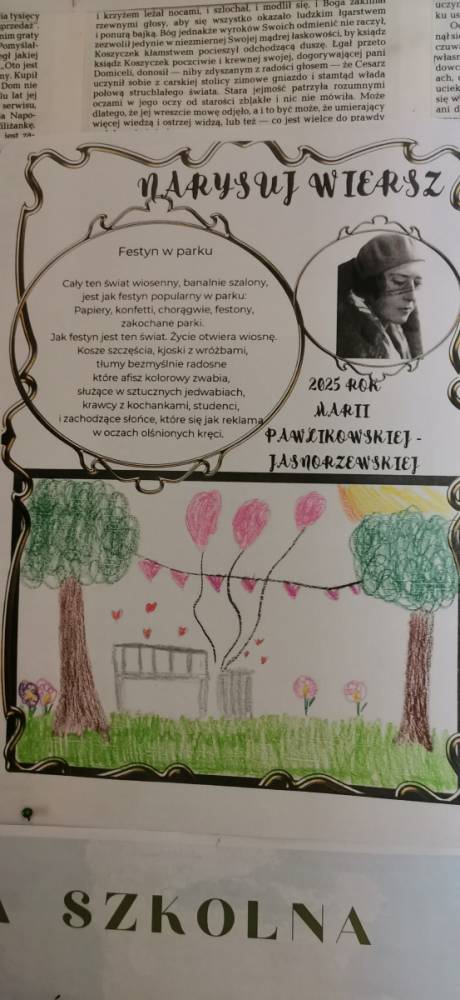 ia tysięcy
przedaż".
nim graty
Pomyślał-
egł jakiej
„Oto jest
ny. Kupił
Dom nie
lu lat jej
serwisu,
a Napo-
iliżankę.
i krzyżem leżał nocami, i szlochał, i modlił się, i Boga zaklinał
rzewnymi głosy, aby się wszystko okazało ludzkim łgarstwem
i ponurą bajką. Bóg jednakże wyroków Swoich odmienić nie raczył,
zezwolił jedynie w niezmiernej Swojej mądrej łaskowości, by ksiądz
Koszyczek kłamstwem pocieszył odchodzącą duszę. Łgał przeto
ksiądz Koszyczek poczciwie i krewnej swojej, dogorywającej pani
Domiceli, donosił — niby zdyszanym z radości głosem — że Cesarz
uczynił sobie z carskiej stolicy zimowe gniazdo i stamtąd włada
połową struchlałego świata. Stara jejmość patrzyła rozumnymi
oczami w jego oczy od starości zblakłe i nic nie mówiła. Może
dlatego, że jej wreszcie mowę odjęło, a i to być może, że umierający
więcej wiedzą i ostrzej widzą, lub też — co jest wielce do prawdy
NARYSUJ WIERSZ
Festyn w parku
Cały ten świat wiosenny, banalnie szalony,
jest jak festyn popularny w parku:
Papiery, konfetti, chorągwie, festony,
zakochane parki.
Jak festyn jest ten świat. Życie otwiera wiosnę.
Kosze szczęścia, kjoski z wróżbami,
tłumy bezmyślnie radosne
które afisz kolorowy zwabia,
służące w sztucznych jedwabiach,
krawcy z kochankami, studenci,
i zachodzące słońce, które się jak reklama
w oczach olśnionych kręci.
2025 ROK
MARII
PAWLIKOWSKIEJ -
JASNORZEWSKIEJ
A SZKOLNA